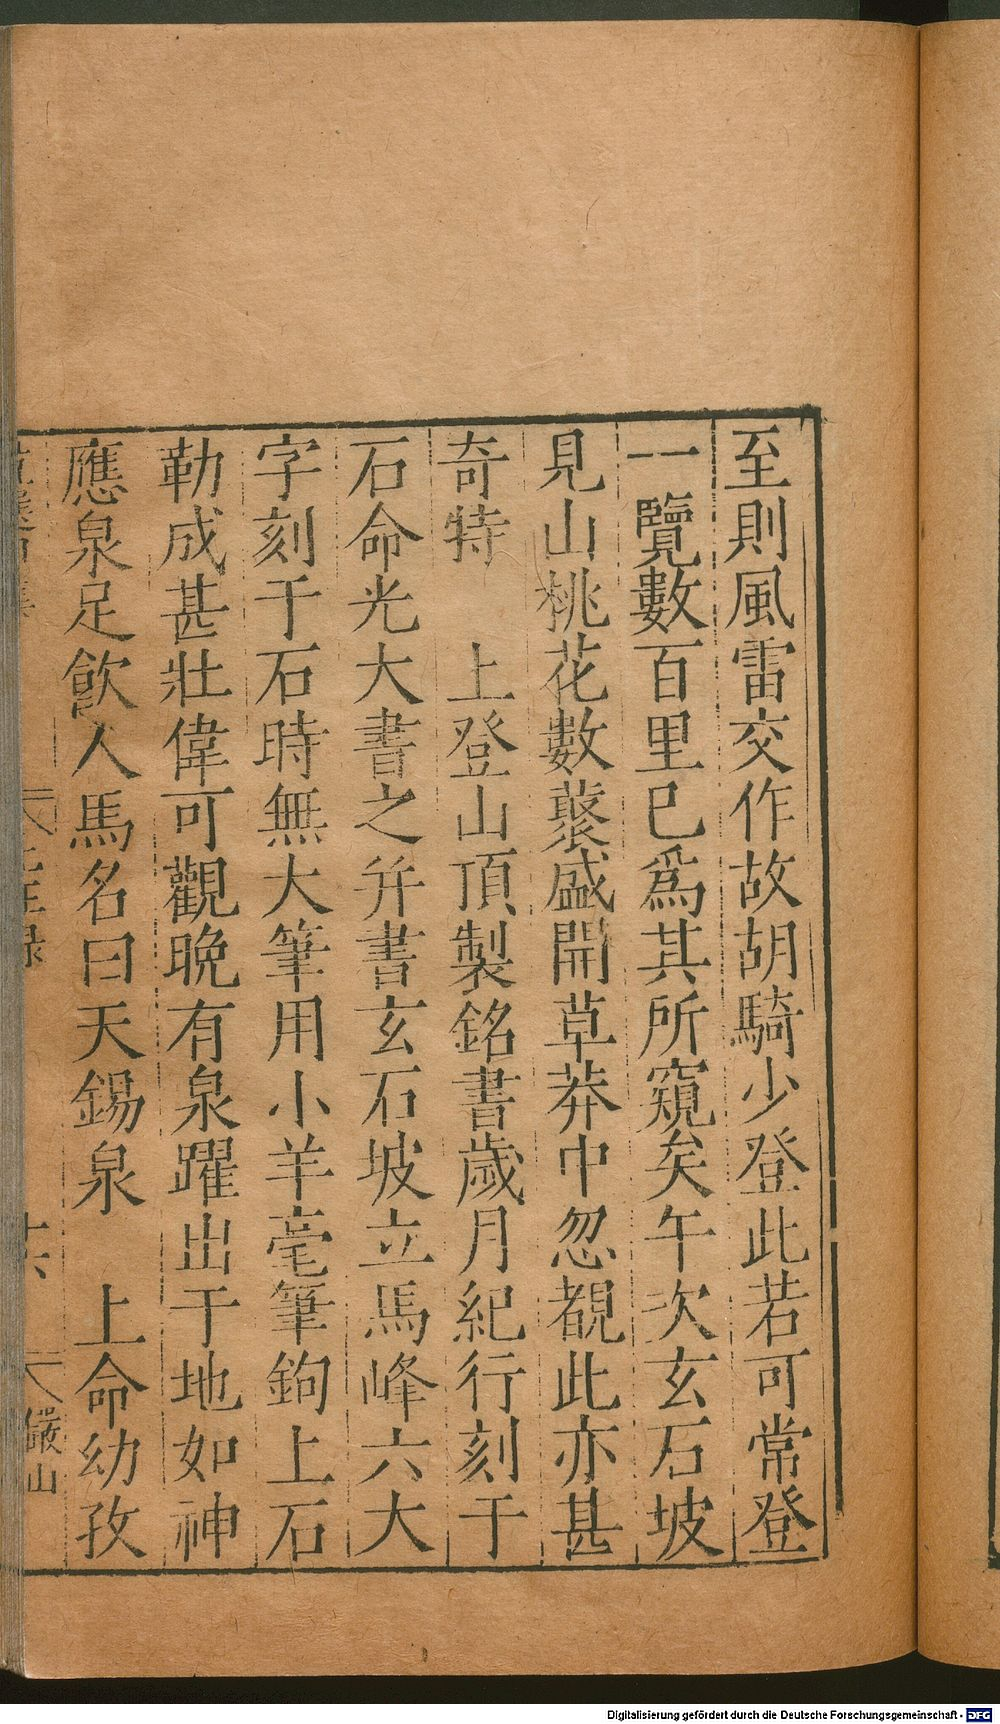 至則風雷交作故胡騎少登此若可常登
一覽數百里已爲其所窺矣午次玄石坡
見山桃花數藂盛開草莽中忽覩此亦甚
奇特　上登山頂製銘書歲月紀行刻于
石命光大書之并書玄石坡立馬峰六大
字刻于石時無大筆用小羊毫筆鉤上石
勒成甚壯偉可觀晚有泉躍出于地如神
應泉足飲人馬名曰天錫泉　上命幼孜
儼山
Digitalisierung gefördert durch die Deutsche Forschungsgemeinschaft - DFG